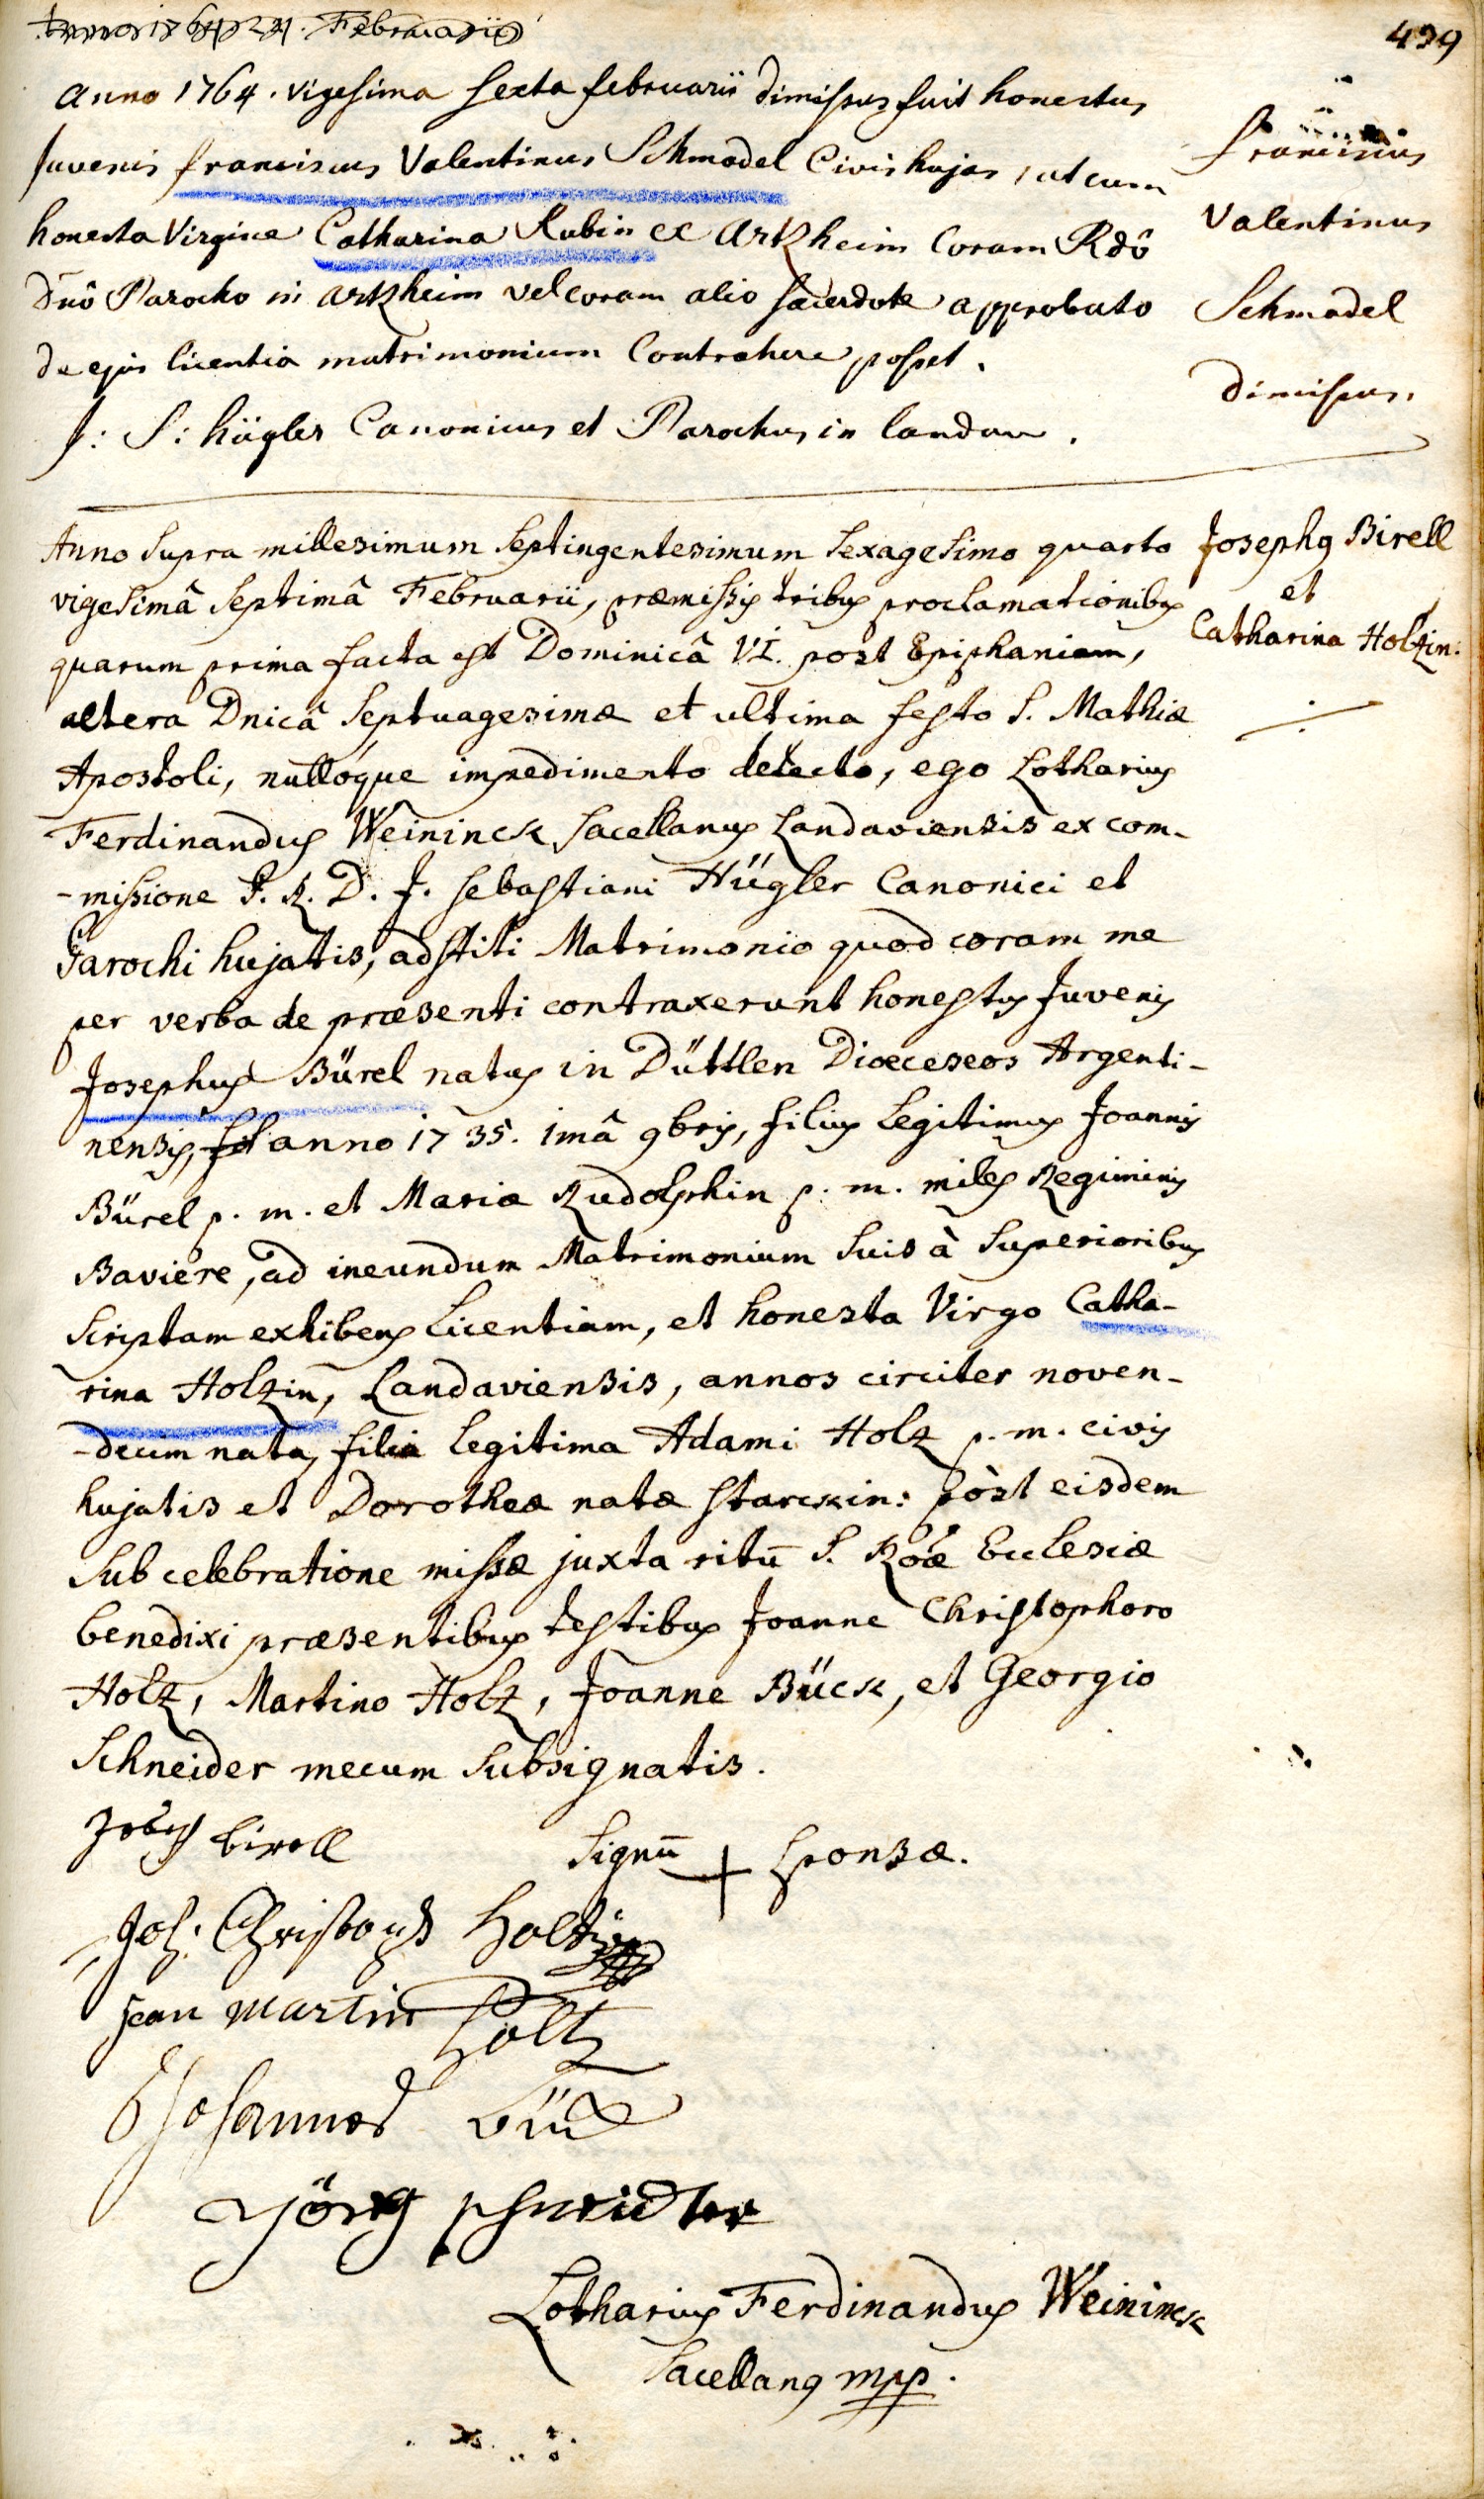 Februarii
439
Anno 1764. vigesima sexta februarii dimissus fuit honestus
Juvenis franciscus Valentinus Schmadel Civis hujas, ut cum
honesta Virgine Catharina Rubin ex Artzheim Coram Rdô
dnô Parocho in artzheim vel coram alio sacerdote approbato
de ejus licentia matrimonium Contrahere posset.
J: S: hügler Canonicus et Parochus in landau.
franciscus
Valentinus
Schmadel
dimissus.
Anno supra millesimum septingentesimum sexagesimo quarto
vigesimâ septimâ Februarii, præmissis tribus proclamationibus
quarum prima facta est Dominicâ VI. post Epiphaniam,
altera Dnicâ septuagesimæ et ultima festo S. Mathiæ
Apostoli, nullóque impedimento detecto, ego Lotharius
Ferdinandus Weininck sacellanus Landaviensis ex com-
-missione P. R. D. J. sebastiani Hügler Canonici et
Parochi hujatis, adstiti Matrimonio quod coram me
per verba de præsenti contraxerunt honestus Juvenis
Josephus Bürel natus in Düttlen Dioeceseos Argenti-
nensis, anno 1735. 1mâ 9bris, filius legitimus Joannis
Bürel p. m. et Mariæ Rudolphin p. m. miles Regiminis
Baviere, ad ineundum Matrimonium suis à superioribus
scriptam exhibens licentiam, et honesta Virgo Catha-
rina Holzin, Landaviensis, annos circiter noven-
-decim nata, filia legitima Adami Holz p. m. civis
hujatis et Dorotheæ natæ starckin: pòst eisdem
sub celebratione missæ juxta ritū S. Roæ Ecclesiæ
benedixi præsentibus testibus Joanne Christophoro
Holz, Martino Holz, Joanne Bück, et Georgio
Schneider mecum subsignatis.
Josephq Birell
et
Catharina Holtzin:
Joseph birell
Signū + sponsæ.
Joh. Christoph Holtz
jean martin Holtz
Johannes Bück
Jörg schneider
Lotharius Ferdinandus Weininck
sacellanq mpp.